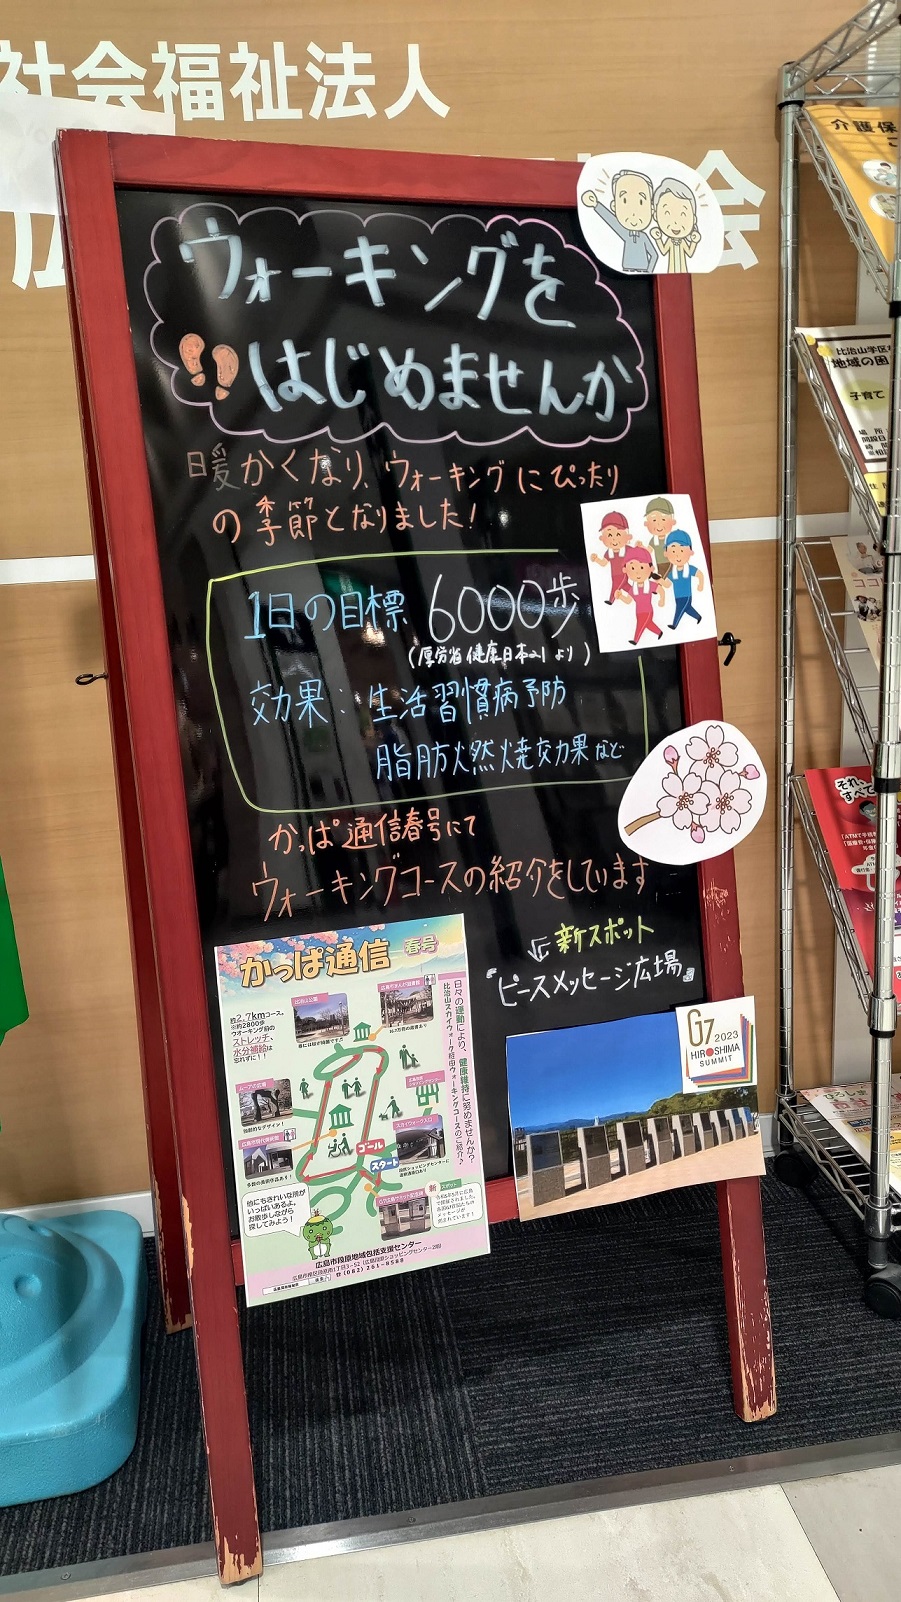 社会福祉法人
会
ウォーキングを
はじめませんか
暖かくなり、ウォーキングにぴったり
の季節となりました!
1日の目標 6000歩
(厚労省 健康日本21より)
効果: 生活習慣病予防
脂肪燃焼効果など
かっぱ通信春号にて
ウォーキングコースの紹介をしています
新スポット
"ピースメッセージ広場"
かっぱ通信 春号
約2.7kmコース。
※約2800歩
ウオーキング前の
ストレッチ、
水分補給は
忘れずに!!
日々の運動により、健康維持に努めませんか?
比治山スカイウォーク経由ウォーキングコースのご紹介♪
比治山公園
広島市まんが図書館
ムーブの広場
広島市現代美術館
スカイウォーク入口
ゴール
スタート
新スポット
他にもきれいな所が
いっぱいあるよ。
お散歩しながら
探してみよう!
広島市段原地域包括支援センター
☎(082)261-8588
G7 2023
HIROSHIMA
SUMMIT
介護保
比治山学区
地域の
子育て
それ、
すべて